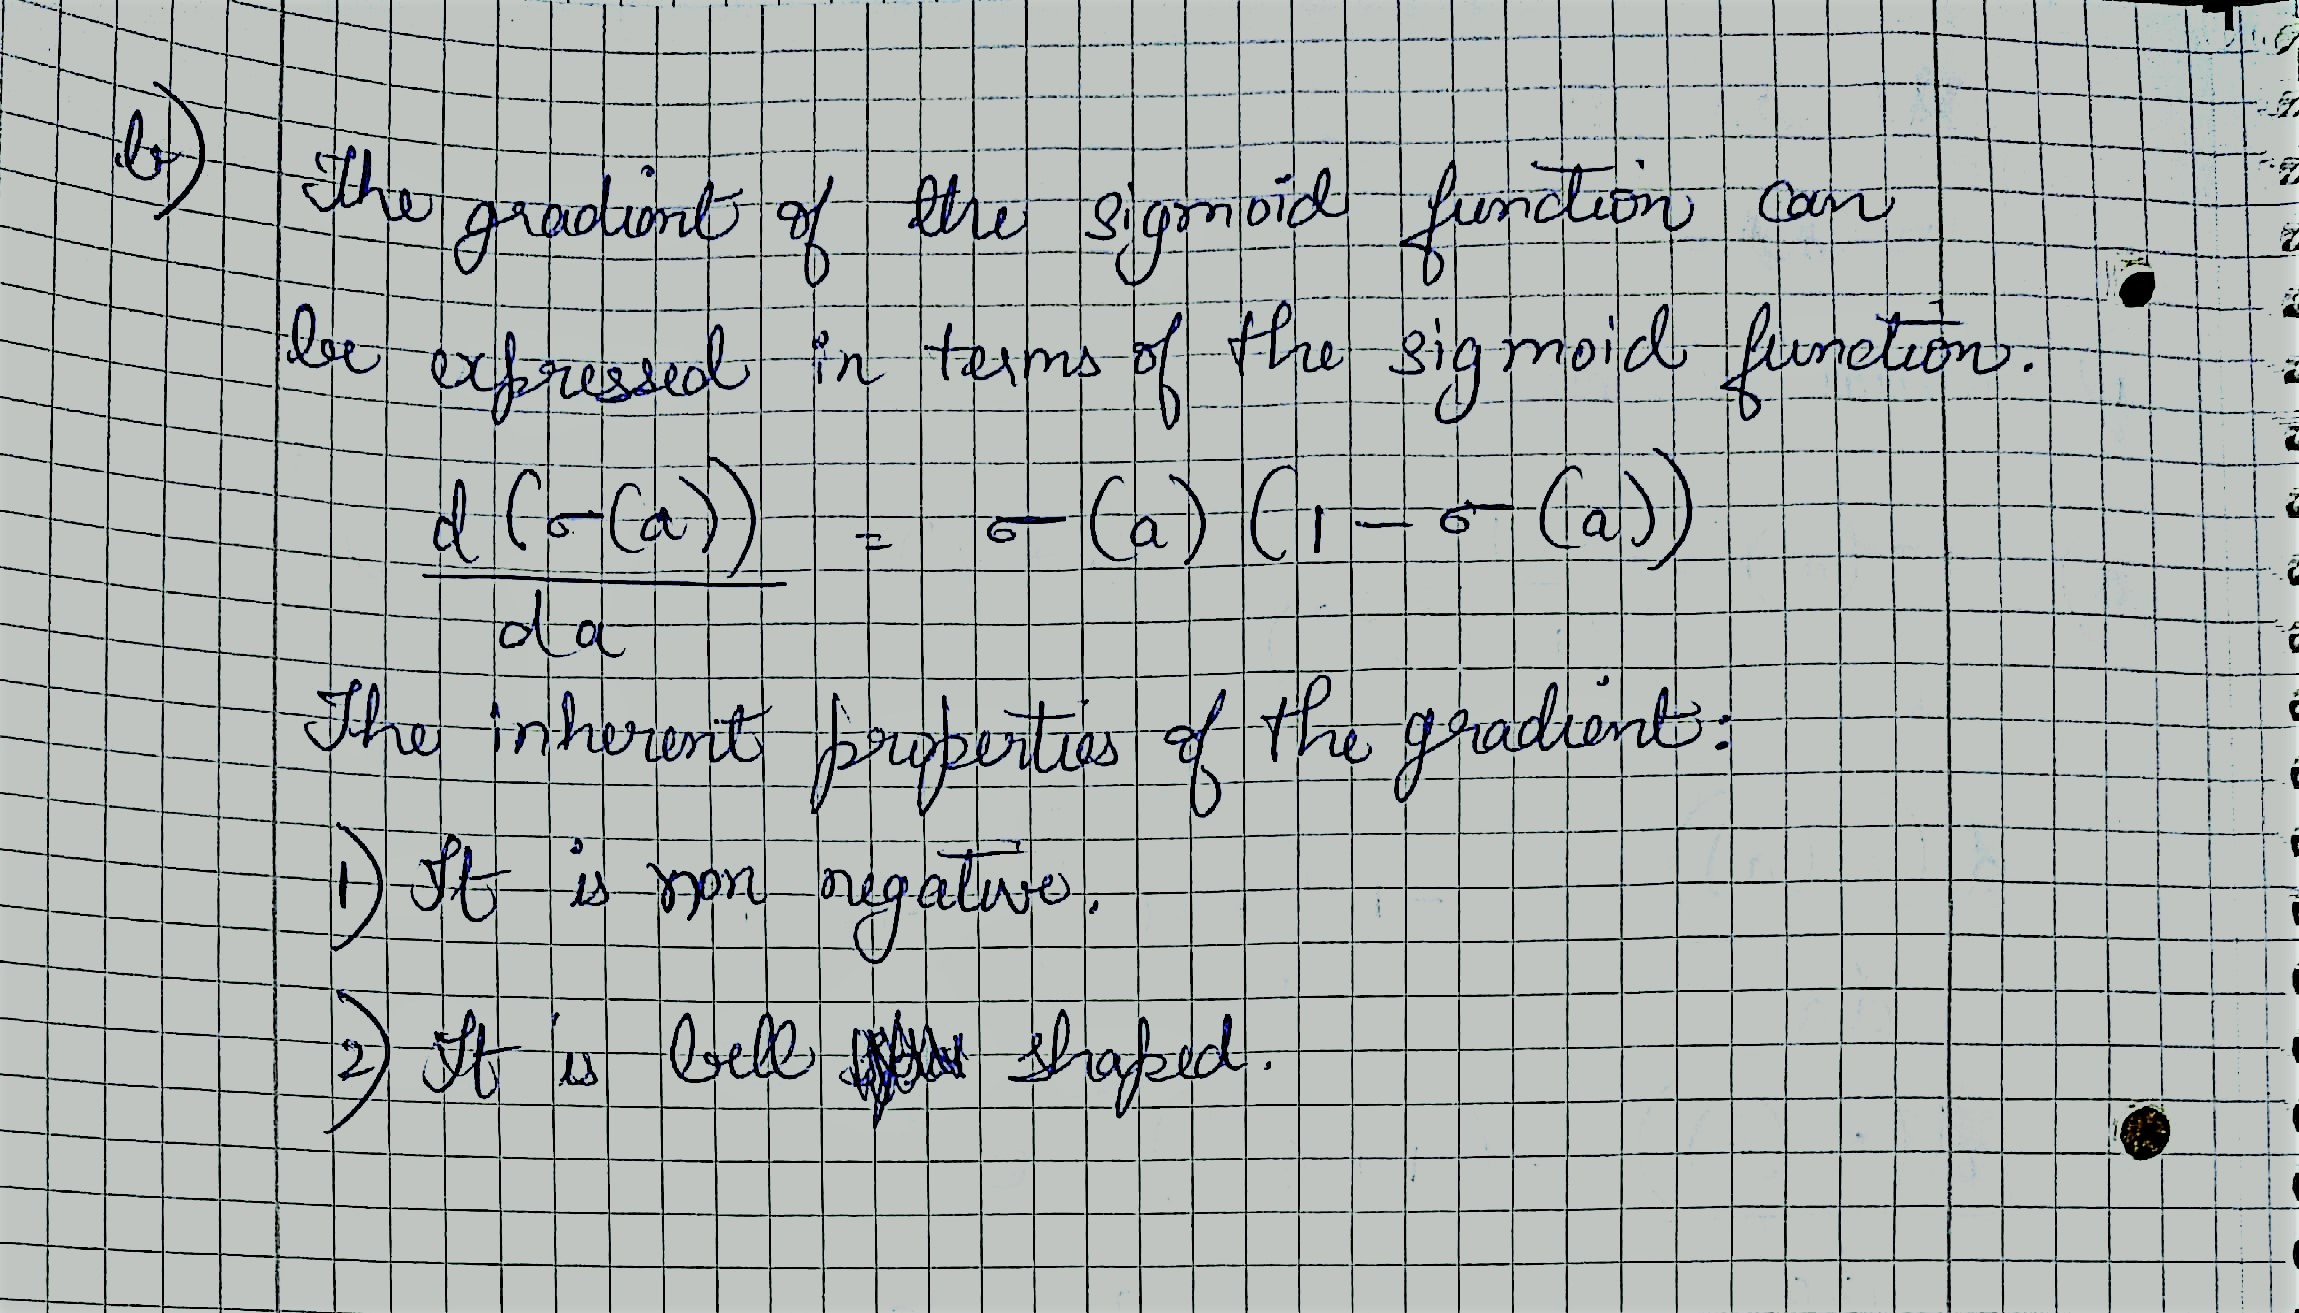 b) The gradient of the sigmoid function can
be expressed in terms of the sigmoid function.
d(σ(a)) = σ(a) (1 - σ(a))
da
The inherent properties of the gradient:
1) It is non negative.
2) It is bell shaped.